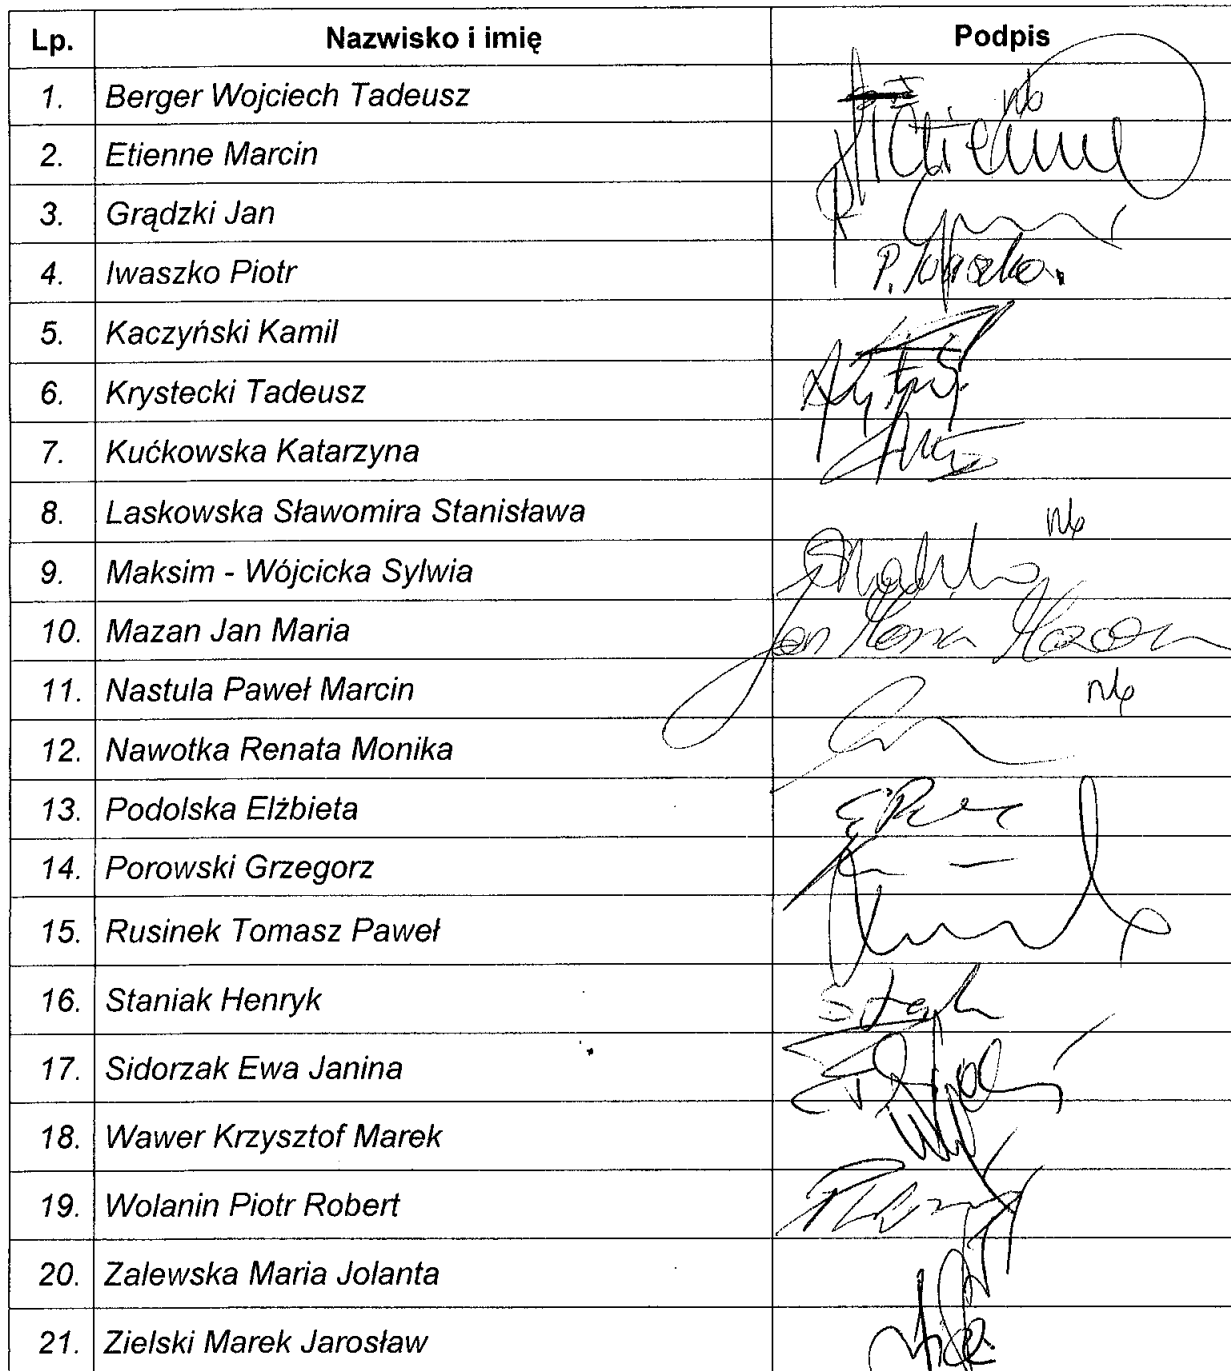 Lp. Nazwisko i imię Podpis
1. Berger Wojciech Tadeusz nb
2. Etienne Marcin MEtienne
3. Grądzki Jan
4. Iwaszko Piotr P. Iwaszko
5. Kaczyński Kamil
6. Krystecki Tadeusz
7. Kućkowska Katarzyna
8. Laskowska Sławomira Stanisława nb
9. Maksim - Wójcicka Sylwia
10. Mazan Jan Maria Jan Maria Mazan
11. Nastula Paweł Marcin nb
12. Nawotka Renata Monika
13. Podolska Elżbieta
14. Porowski Grzegorz
15. Rusinek Tomasz Paweł
16. Staniak Henryk
17. Sidorzak Ewa Janina
18. Wawer Krzysztof Marek
19. Wolanin Piotr Robert
20. Zalewska Maria Jolanta
21. Zielski Marek Jarosław